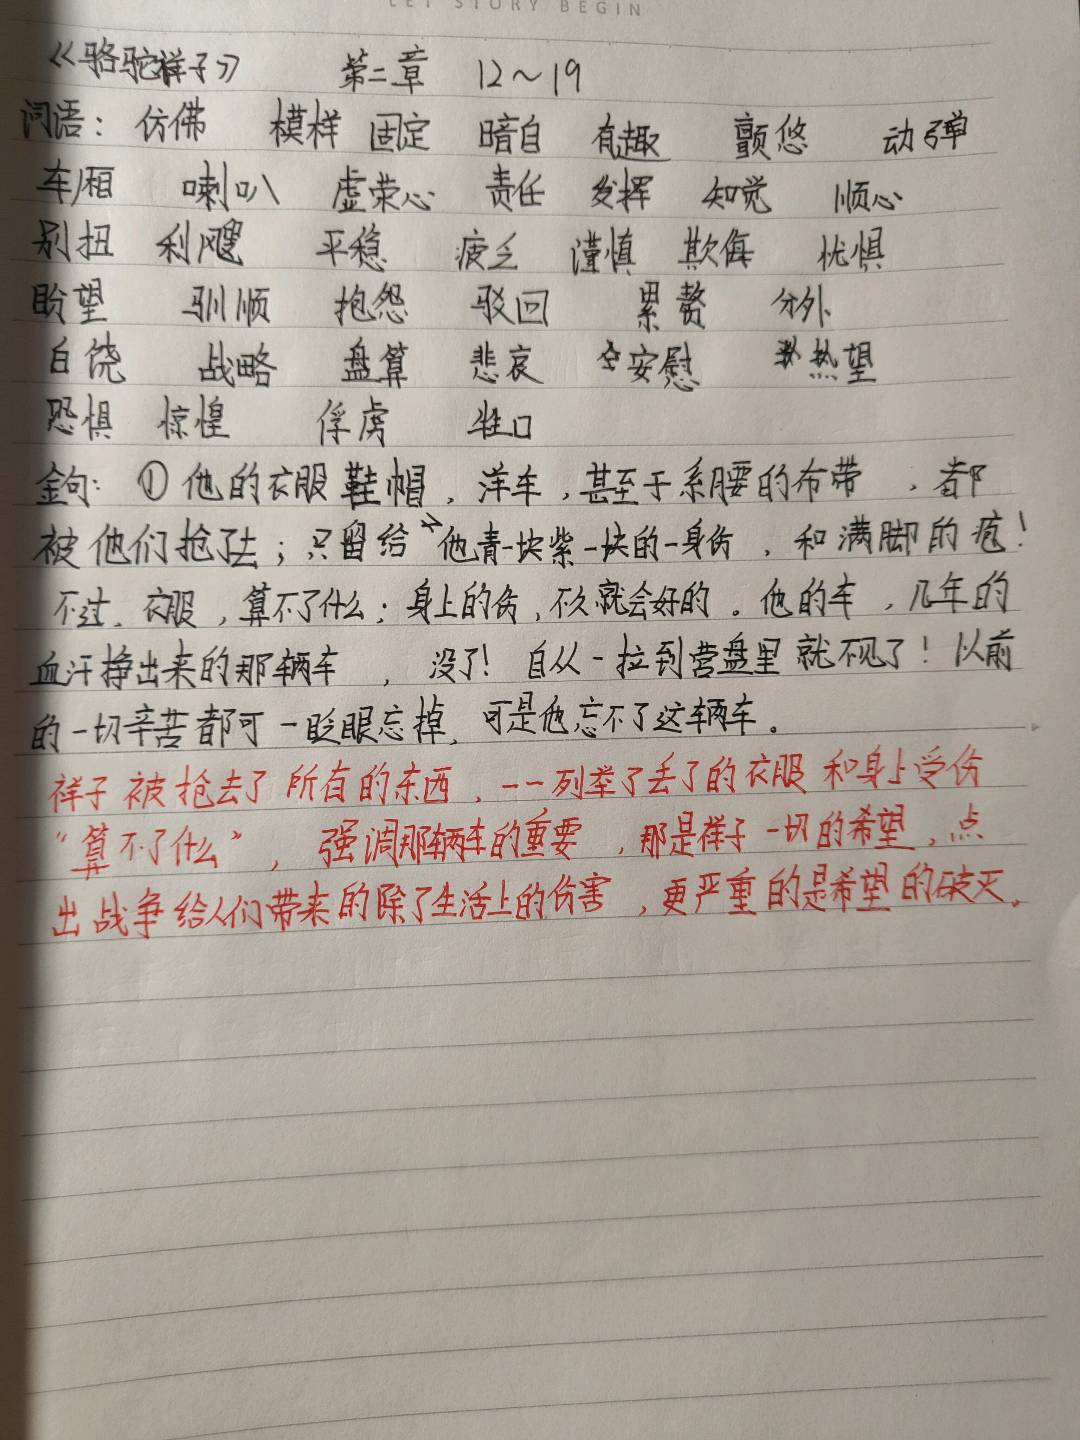 LET STORY BEGIN
《骆驼祥子》 第二章 12～19
词语：仿佛 模样 固定 暗自 有趣 颤悠 动弹
车厢 喇叭 虚荣心 责任 发挥 知觉 顺心
别扭 利飕 平稳 疲乏 谨慎 欺侮 忧惧
盼望 驯顺 抱怨 驳回 累赘 分外
白饶 战略 盘算 悲哀 安慰 热望
恐惧 惊惶 俘虏 牲口
金句：① 他的衣服鞋帽，洋车，甚至于系腰的布带，都
被他们抢了去；只留给他青一块紫一块的一身伤，和满脚的疱！
不过，衣服，算不了什么；身上的伤，不久就会好的。他的车，几年的
血汗挣出来的那辆车，没了！自从一拉到营盘里就不见了！以前
的一切辛苦都可一眨眼忘掉，可是他忘不了这辆车。
祥子被抢去了所有的东西，一一列举了丢了的衣服和身上受伤
“算不了什么”，强调那辆车的重要，那是祥子一切的希望，点
出战争给人们带来的除了生活上的伤害，更严重的是希望的破灭。